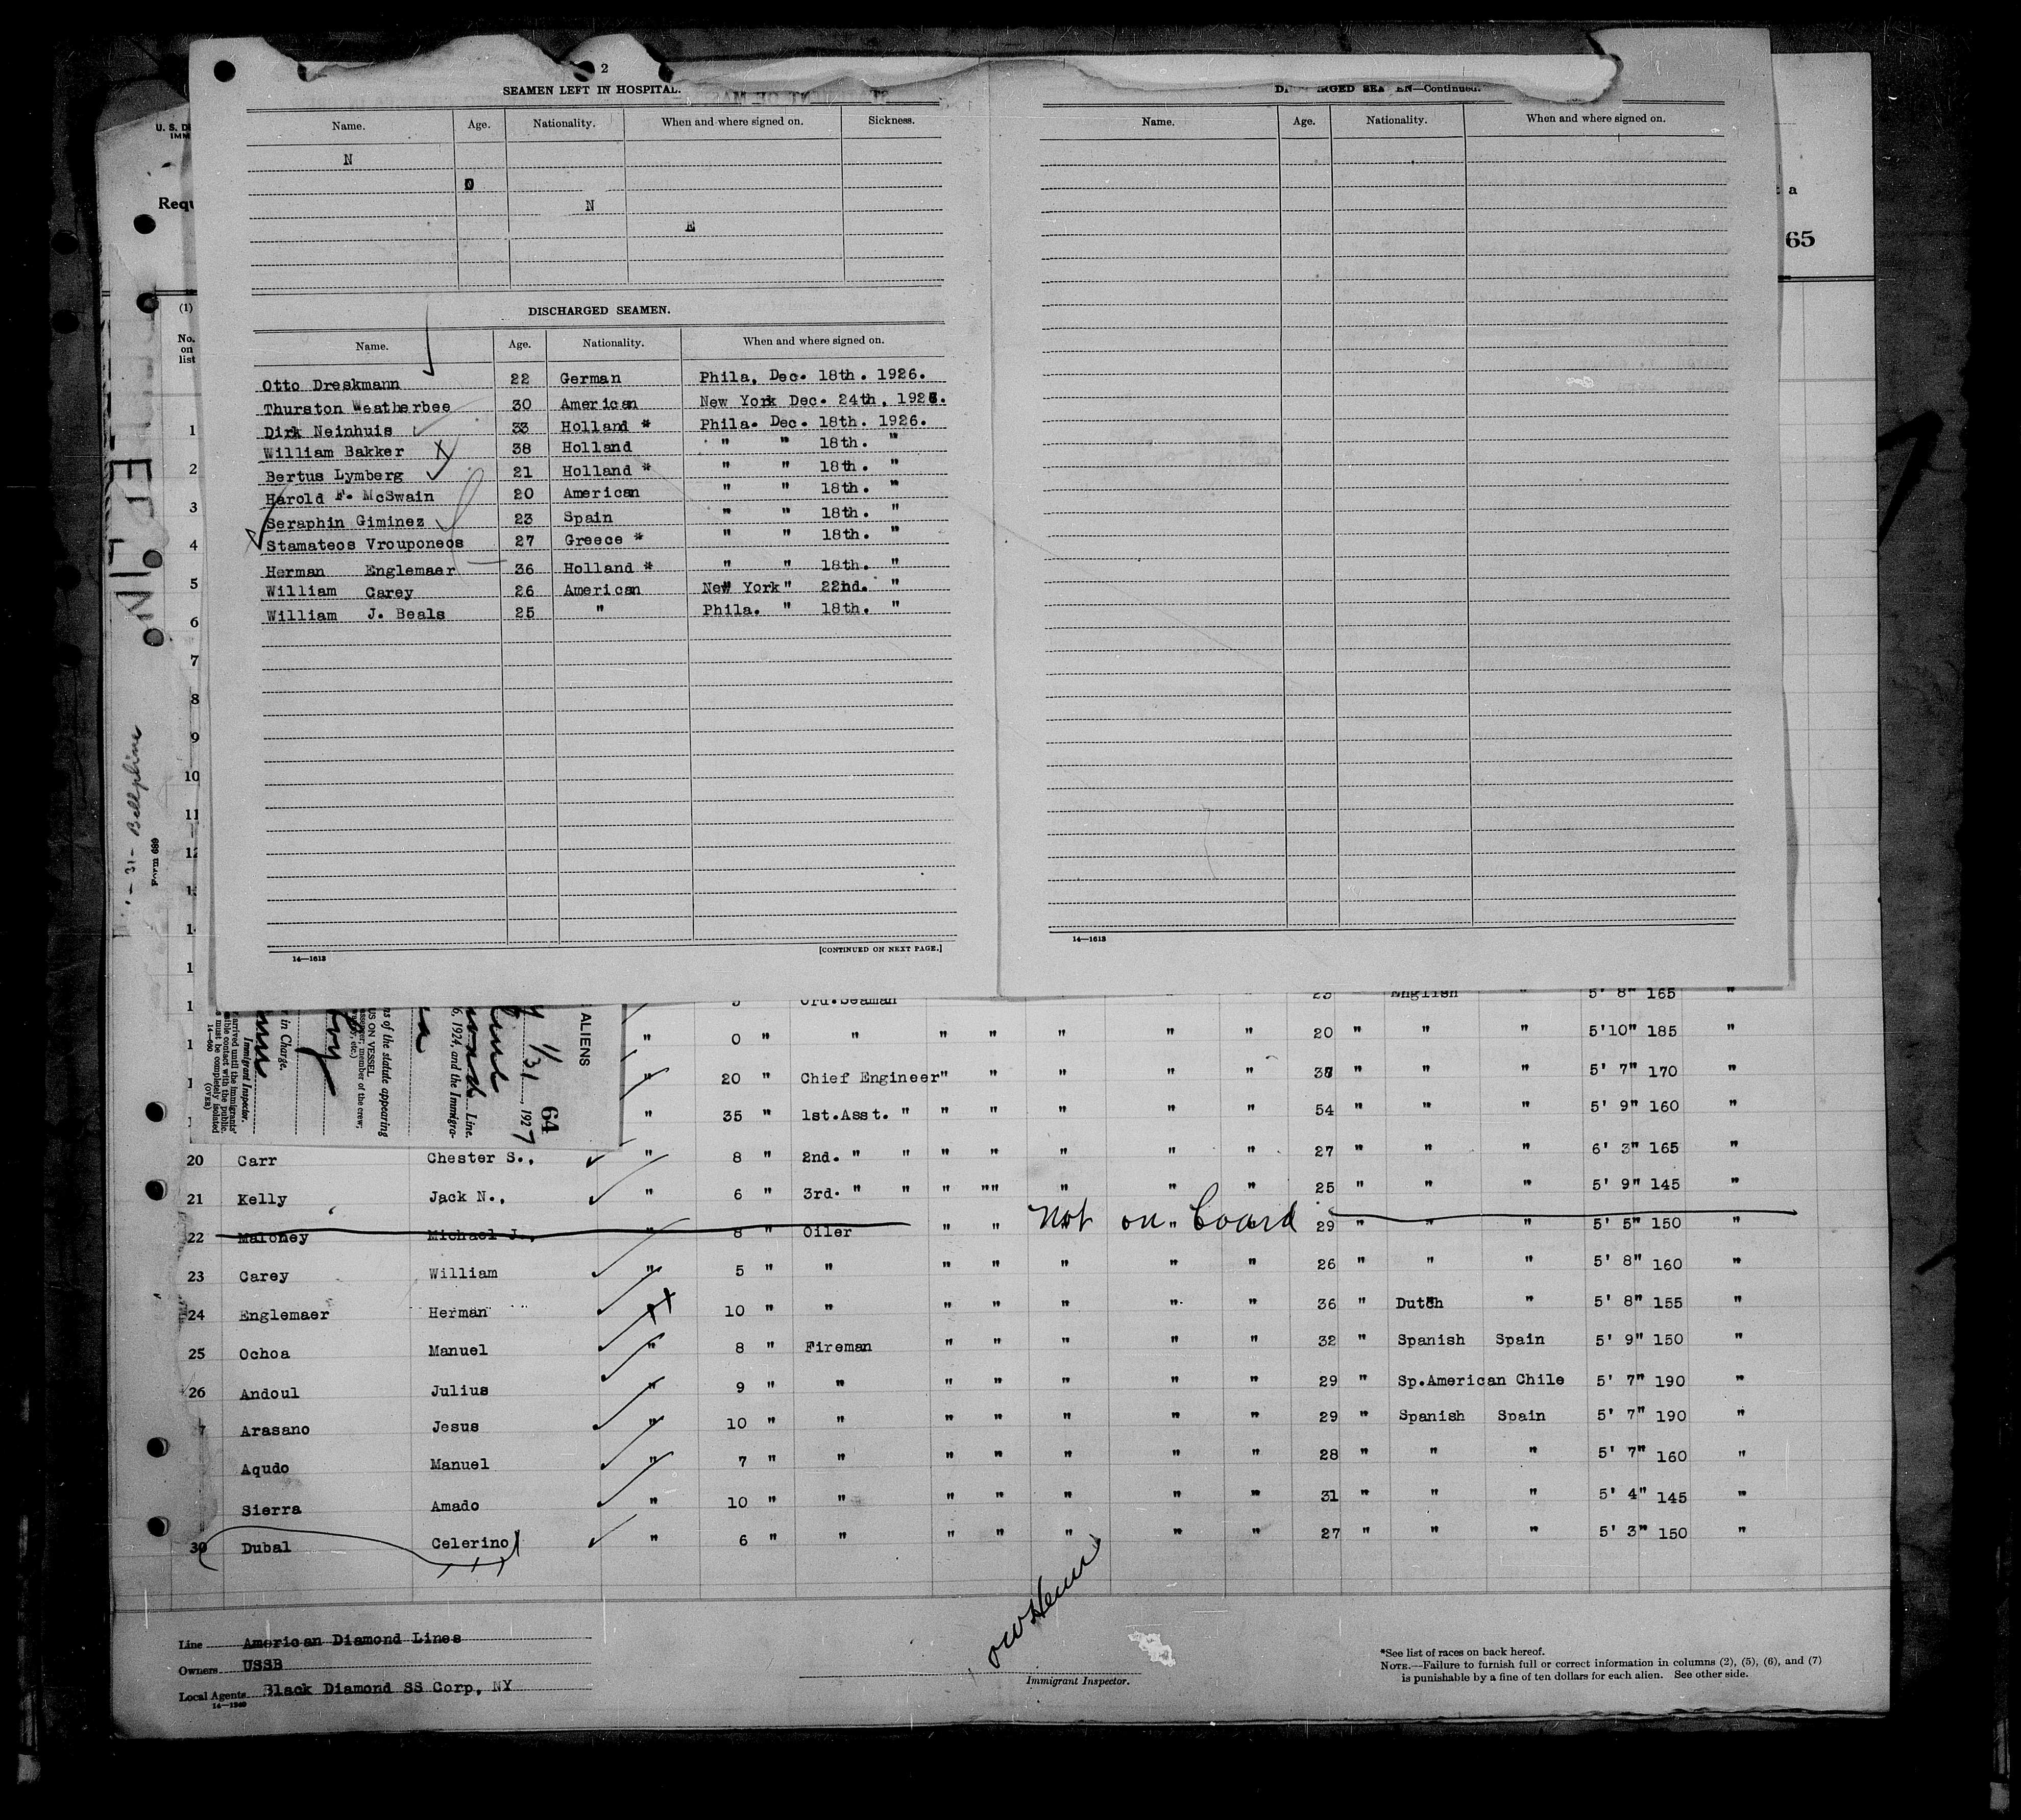 2
SEAMEN LEFT IN HOSPITAL.
Name. Age. Nationality. When and where signed on. Sickness.
N
O
N
E
DISCHARGED SEAMEN.
Name. Age. Nationality. When and where signed on.
Otto Dreskmann 22 German Phila, Dec. 18th. 1926.
Thurston Weatherbee 30 American New York Dec. 24th, 1926.
Dirk Neinhuis 33 Holland * Phila. Dec. 18th. 1926.
William Bakker X 38 Holland " " 18th. "
Bertus Lymberg 21 Holland * " " 18th. "
Harold F. McSwain 20 American " " 18th. "
Seraphin Giminez 23 Spain " " 18th. "
Stamateos Vrouponeos 27 Greece * " " 18th. "
Herman Englemaer 36 Holland * " " 18th. "
William Carey 26 American New York " 22nd. "
William J. Beals 25 " Phila. " 18th. "
14—1613 [CONTINUED ON NEXT PAGE.]
DISCHARGED SEAMEN—Continued.
Name. Age. Nationality. When and where signed on.
14—1613
U. S. DE
IMM
Requ
a
65
(1)
No. on list
1
2
3
4
5
6
7
8
9
10
11
12
Form 689
ALIENS
1/31, 1927
64
Line.
6, 1924, and the Immigra-
ns of the statute appearing
US ON VESSEL
in Charge.
Immigrant Inspector.
arrived until the immigrants'
sible contact with the public.
s must be completely isolated
(OVER)
14—660
5 Ord.Seaman 23 English 5' 8" 165 "
" 0 " " " " " " " 20 " " " 5'10" 185 "
" 20 " Chief Engineer " " " " " " " " 5' 7" 170 "
" 35 " 1st.Asst. " " " " " " 54 " " " 5' 9" 160 "
20 Carr Chester S., " 8 " 2nd. " " " " " " " 27 " " " 6' 3" 165 "
21 Kelly Jack N., " 6 " 3rd. " " " "" " " " 25 " " " 5' 9" 145 "
22 Maloney Michael J., " 8 " Oiler " " Not on board 29 " " " 5' 5" 150 "
23 Carey William " 5 " " " " " " " 26 " " " 5' 8" 160 "
24 Englemaer Herman 10 " " " " " " " 36 " Dutch " 5' 8" 155 "
25 Ochoa Manuel " 8 " Fireman " " " " " 32 " Spanish Spain 5' 9" 150 "
26 Andoul Julius " 9 " " " " " " " 29 " Sp.American Chile 5' 7" 190 "
7 Arasano Jesus " 10 " " " " " " " 29 " Spanish Spain 5' 7" 190 "
Aqudo Manuel " 7 " " " " " " " 28 " " " 5' 7" 160 "
Sierra Amado " 10 " " " " " " " 31 " " " 5' 4" 145 "
30 Dubal Celerino " 6 " " " " " " " 27 " " " 5' 3" 150 "
Line American Diamond Lines
Owners USSB
Local Agents Black Diamond SS Corp, NY
14—1240
Immigrant Inspector.
*See list of races on back hereof.
NOTE.—Failure to furnish full or correct information in columns (2), (5), (6), and (7)
is punishable by a fine of ten dollars for each alien. See other side.